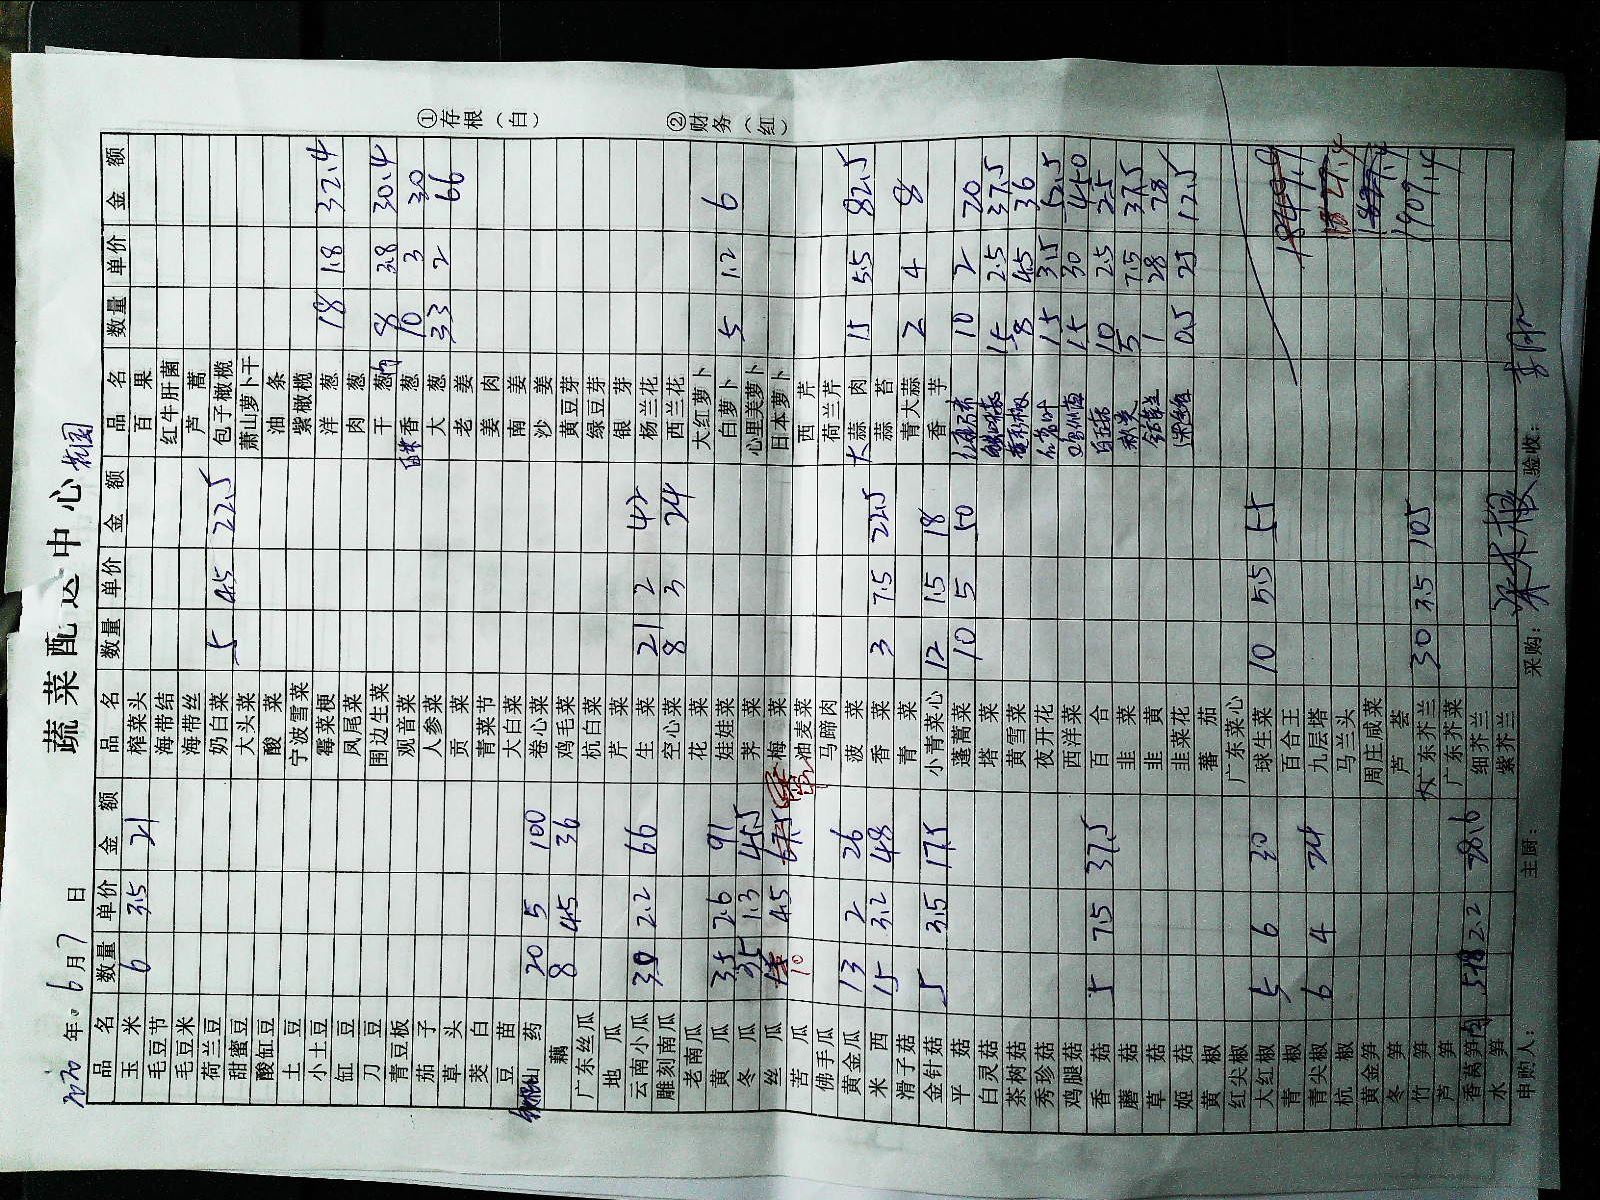 蔬菜配 中心 桃园
2020年6月7日
品名 数量 单价 金额 品名 数量 单价 金额 品名 数量 单价 金额
玉米 6 3.5 21 榨菜头 百果
毛豆节 海带结 红牛肝菌
毛豆米 海带丝 芦蒿
荷兰豆 奶白菜 5 4.5 22.5 包子橄榄
甜蜜豆 大头菜 萧山萝卜干
酸缸豆 酸菜 油条
土豆 宁波雪菜 紫橄榄
小土豆 霉菜梗 洋葱 18 1.8 32.4
缸豆 凤尾菜 肉葱
刀豆 围边生菜 干葱肉 8 3.8 30.4
青豆板 观音菜 香葱 10 3 30
茄子 人参菜 大葱 33 2 66
草头 贡菜 老姜
茭白 青菜节 姜肉
豆苗 大白菜 南姜
山药 20 5 100 卷心菜 沙姜
藕 8 4.5 36 鸡毛菜 黄豆芽
广东丝瓜 杭白菜 绿豆芽
地瓜 芹菜 银芽
云南小瓜 30 2.2 66 生菜 21 2 42 杨兰花
雕刻南瓜 空心菜 8 3 24 西兰花
老南瓜 花菜 大红萝卜
黄瓜 35 2.6 91 娃娃菜 白萝卜 5 1.2 6
冬瓜 35 1.3 45.5 荠菜 心里美萝卜
丝瓜 10 4.5 梅菜 日本萝卜
苦瓜 油麦菜 西芹
佛手瓜 马蹄肉 荷兰芹
黄金瓜 13 2 26 菠菜 大蒜肉 15 5.5 82.5
米西 15 3.2 48 香菜 3 7.5 22.5 蒜苔
滑子菇 青菜 青大蒜 2 4 8
金针菇 5 3.5 17.5 小青菜心 12 1.5 18 香芋
平菇 蓬蒿菜 10 5 50 10 2 20
白灵菇 塔菜 15 2.5 37.5
茶树菇 黄雪菜 8 4.5 36
秀珍菇 夜开花 15 3.5 52.5
鸡腿菇 西洋菜 15 30 450
香菇 5 7.5 37.5 百合 10 2.5 25
蘑菇 韭菜 5 7.5 37.5
草菇 韭黄 1 28 28
姬菇 韭菜花 0.5 25 12.5
黄椒 蕃茄
红尖椒 广东菜心
大红椒 5 6 30 球生菜 10 5.5 55
青椒 百合王
青尖椒 6 4 24 九层塔
杭椒 马兰头
黄金笋 周庄咸菜
冬笋 芦荟
竹笋 大广东芥兰 30 3.5 105 1909.4
芦笋 广东芥菜
香莴笋肉 2.2 细芥兰
水笋 紫芥兰
申购人： 主厨： 采购： 验收：
①存根（白）
②财务（红）